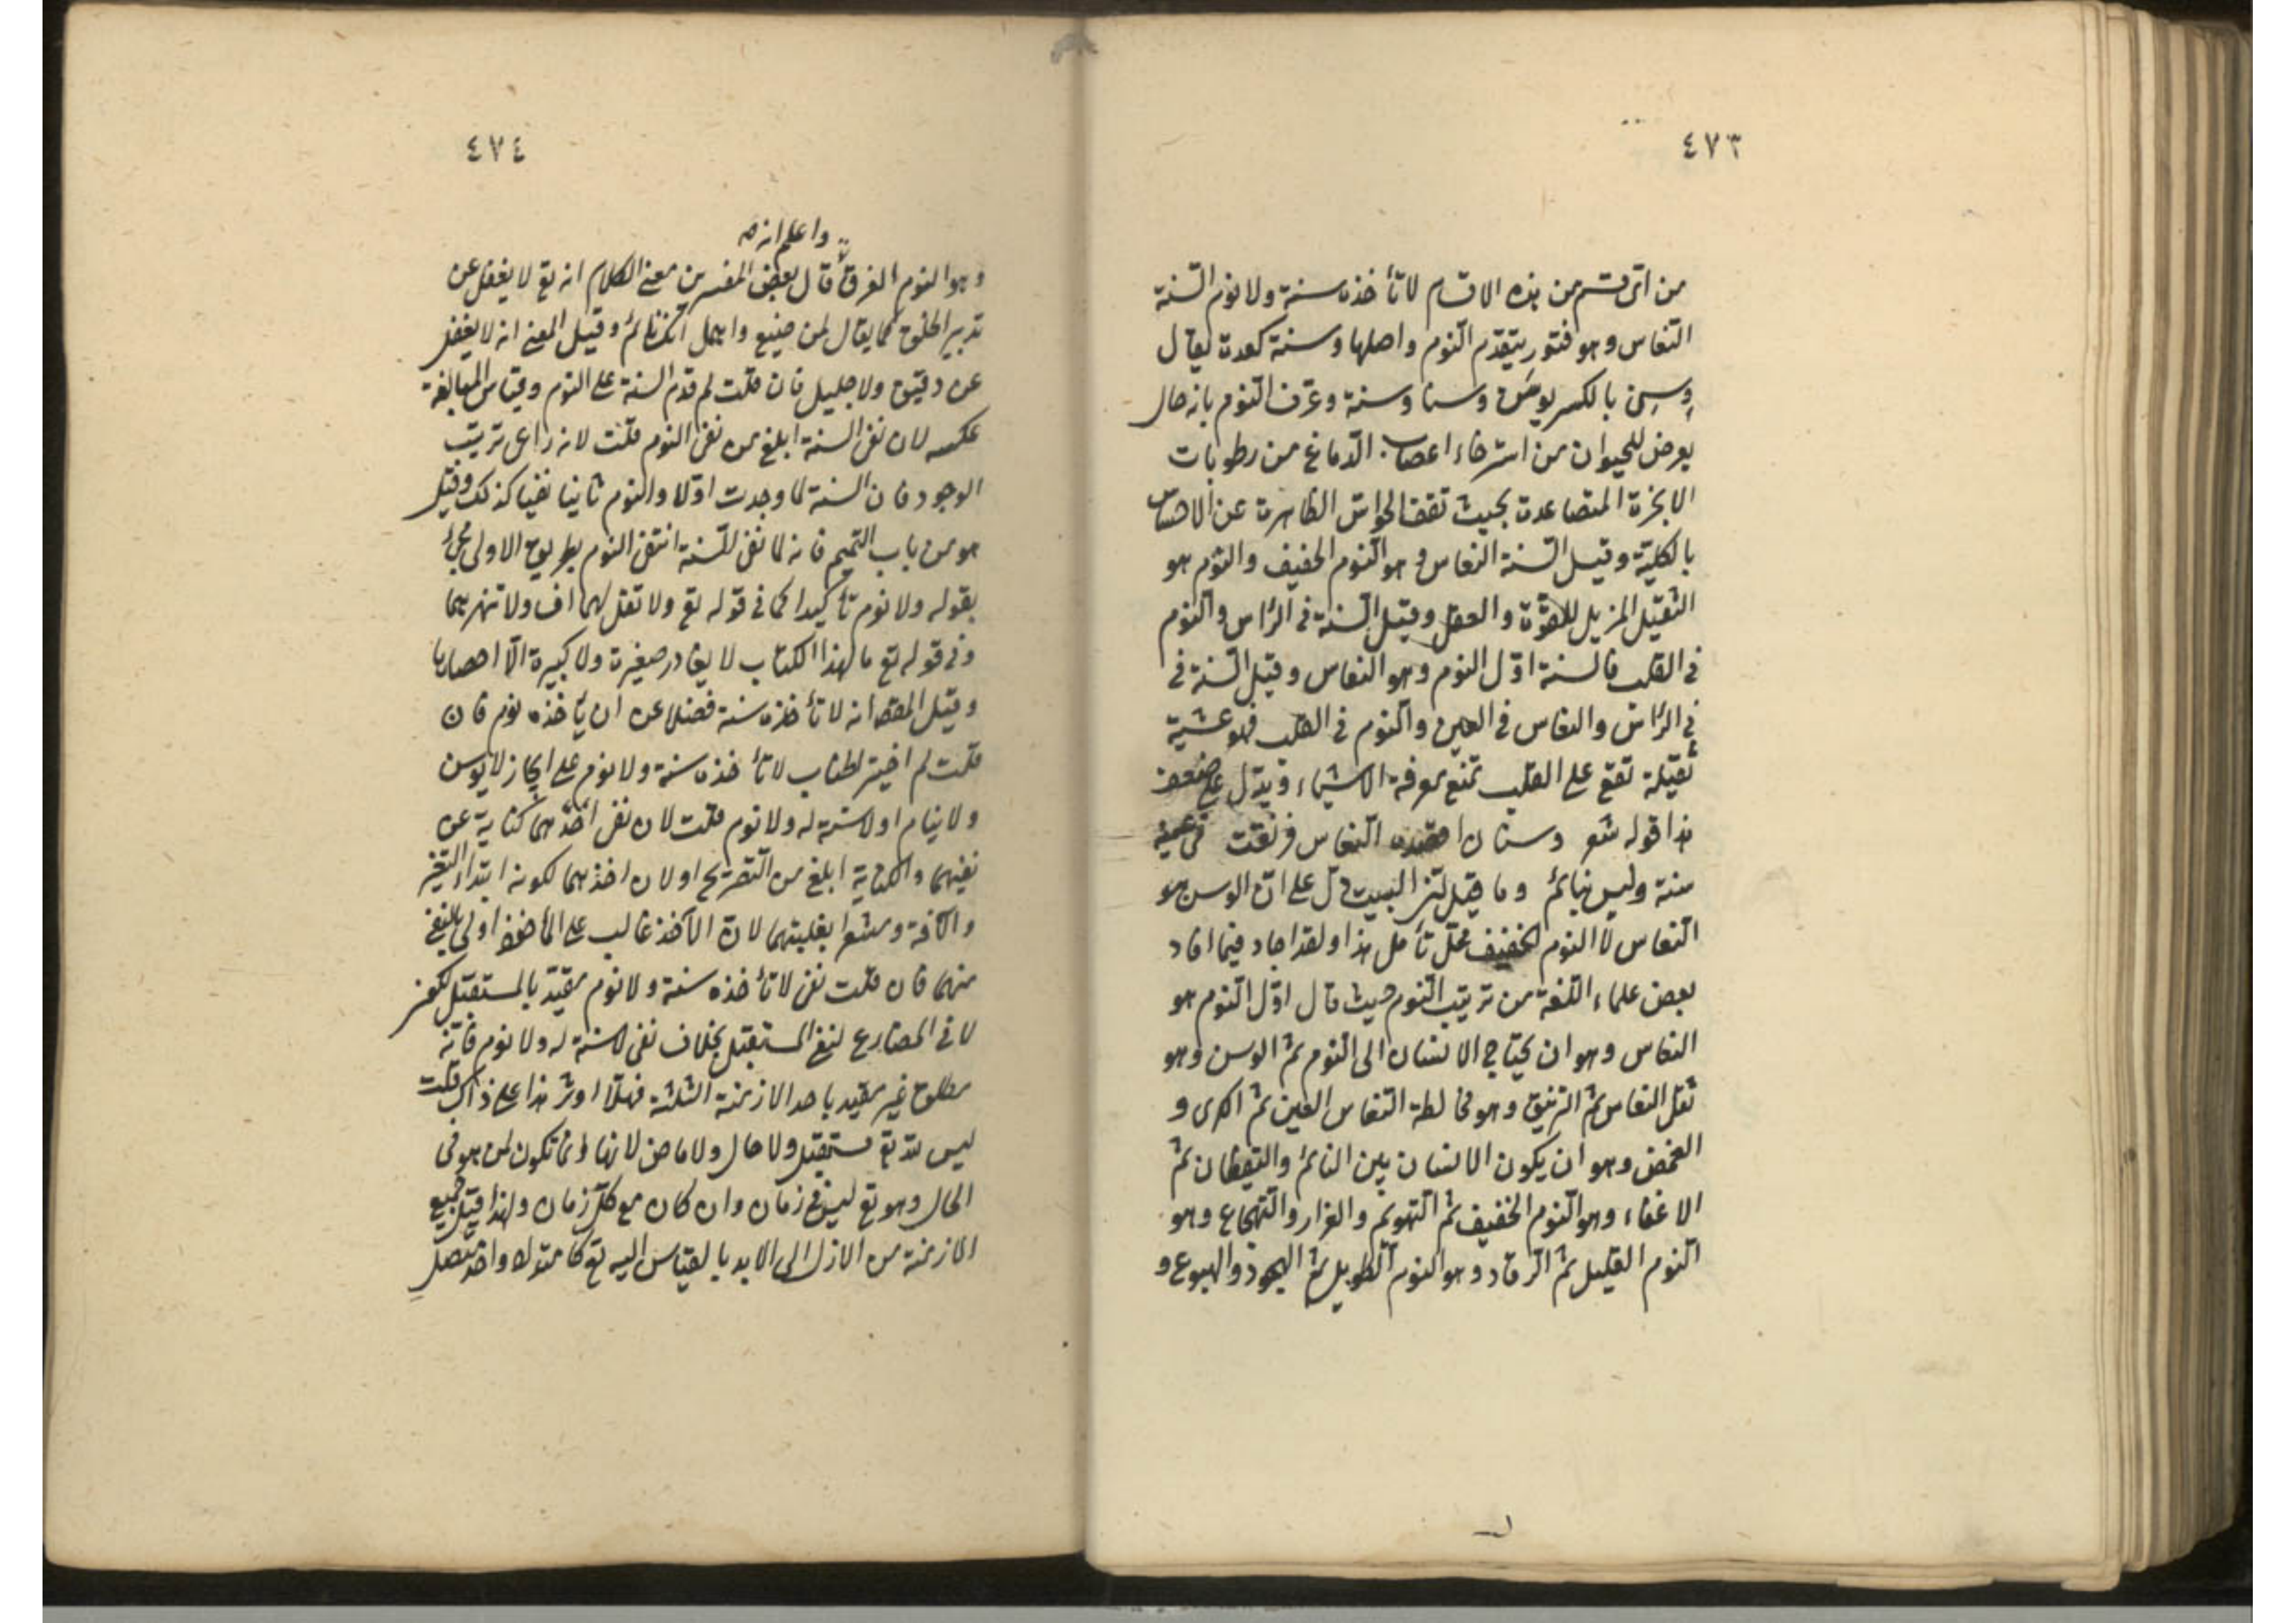 ٤٧٣
من اى قسم من هذه الاقسام لا تأخذه سنة ولا نوم السّنة
النّعاس وهو فتور يتقدّم النّوم واصلها وسنة كعدة يقال
وسِن بالكسر يوسَن وسنا وسنة وعرّف النّوم بانه حال
يعرض للحيوان من استرخاء اعصاب الدّماغ من رطوبات
الابخرة المتصاعدة بحيث تقف الحواسّ الظاهرة عن الاحساس
بالكليّة وقيل السّنة النعاس وهو النّوم الخفيف والنّوم هو
الثقيل المزيل للقوّة والعقل وقيل السّنة فى الرّأس والنّوم
فى القلب فالسنة اوّل النّوم وهو النعاس وقيل السّنة فى
فى الرّأس والنعاس فى العين والنّوم فى القلب فهو غشية
ثقيلة تقع على القلب تمنع معرفة الاشياء ويدل على ضعف
هذا قوله شعر وسنان اقصده النّعاس فرنّقت فى عينه
سنة وليس بنائم وما قيل البيت دلّ على انّ الوسن هو
النّعاس لا النوم الخفيف محلّ تأمل هذا ولقد اجاد فيما افاد
بعض علماء اللّغة من ترتيب النّوم حيث قال اوّل النّوم هو
النعاس وهو ان يحتاج الانسان الى النّوم ثمّ الوسن وهو
ثقل النعاس ثمّ الترنيق وهو مخالطة النّعاس العين ثمّ الكرى و
الغمض وهو ان يكون الانسان بين النائم واليقظان ثمّ
الاغفاء وهو النّوم الخفيف ثمّ التّهويم والغرار والتّهجاع وهو
النّوم القليل ثمّ الرّقاد وهو النّوم الطّويل ثمّ الهجود والهبوع و
٤٧٤
واعلم انه
وهو النوم الغرق قال بعض المفسرين معنى الكلام انه تع لا يغفل عن
تدبير الخلق كما يقال لمن ضيع واهمل انك نائم وقيل المعنى انه لا يغفل
عن دقيق ولا جليل فان قلت لم قدّم السنة على النوم وقياس المبالغة
عكسه لان نفى السنة ابلغ من نفى النوم قلت لانه راعى ترتيب
الوجود فان السنة لما وجدت اوّلا والنوم ثانيا نفيا كذلك وقيل
هو من باب التتميم فانه لما نفى السّنة انتفى النوم بطريق الاولى فجئ
بقوله ولا نوم تأكيدا كما فى قوله تع ولا تقل لهما اف ولا تنهرهما
وفى قوله تع ما لهذا الكتاب لا يغادر صغيرة ولا كبيرة الّا احصاها
وقيل المقصد انه لا تأخذه سنة فضلا عن ان يأخذه نوم فان
قلت لم اختير اطناب لا تأخذه سنة ولا نوم على ايجاز لا يوسن
ولا ينام او لا سنة له ولا نوم قلت لان نفى اخذهما كناية عن
نفيهما والكناية ابلغ من التّصريح او لان اخذهما لكونه ابتداء التغير
والآفة ومشعرا بغلبتهما لانّ الآخذ غالب على المأخوذ اولى بالنفى
منهما فان قلت نفى لا تأخذه سنة ولا نوم مقيّد بالمستقبل لكون
لا فى المضارع لنفى المستقبل بخلاف نفى لا سنة له ولا نوم فانّه
مطلق غير مقيد باحد الازمنة الثلثة فهلّا اوثر هذا على ذاك قلت
ليس للّه تع مستقبل ولا حال ولا ماض لانها انما تكون لمن هو فى
الحال وهو تع ليس فى زمان وان كان مع كلّ زمان ولهذا قيل جميع
الازمنة من الازل الى الابد بالقياس اليه تع كامتداد واحد متصل